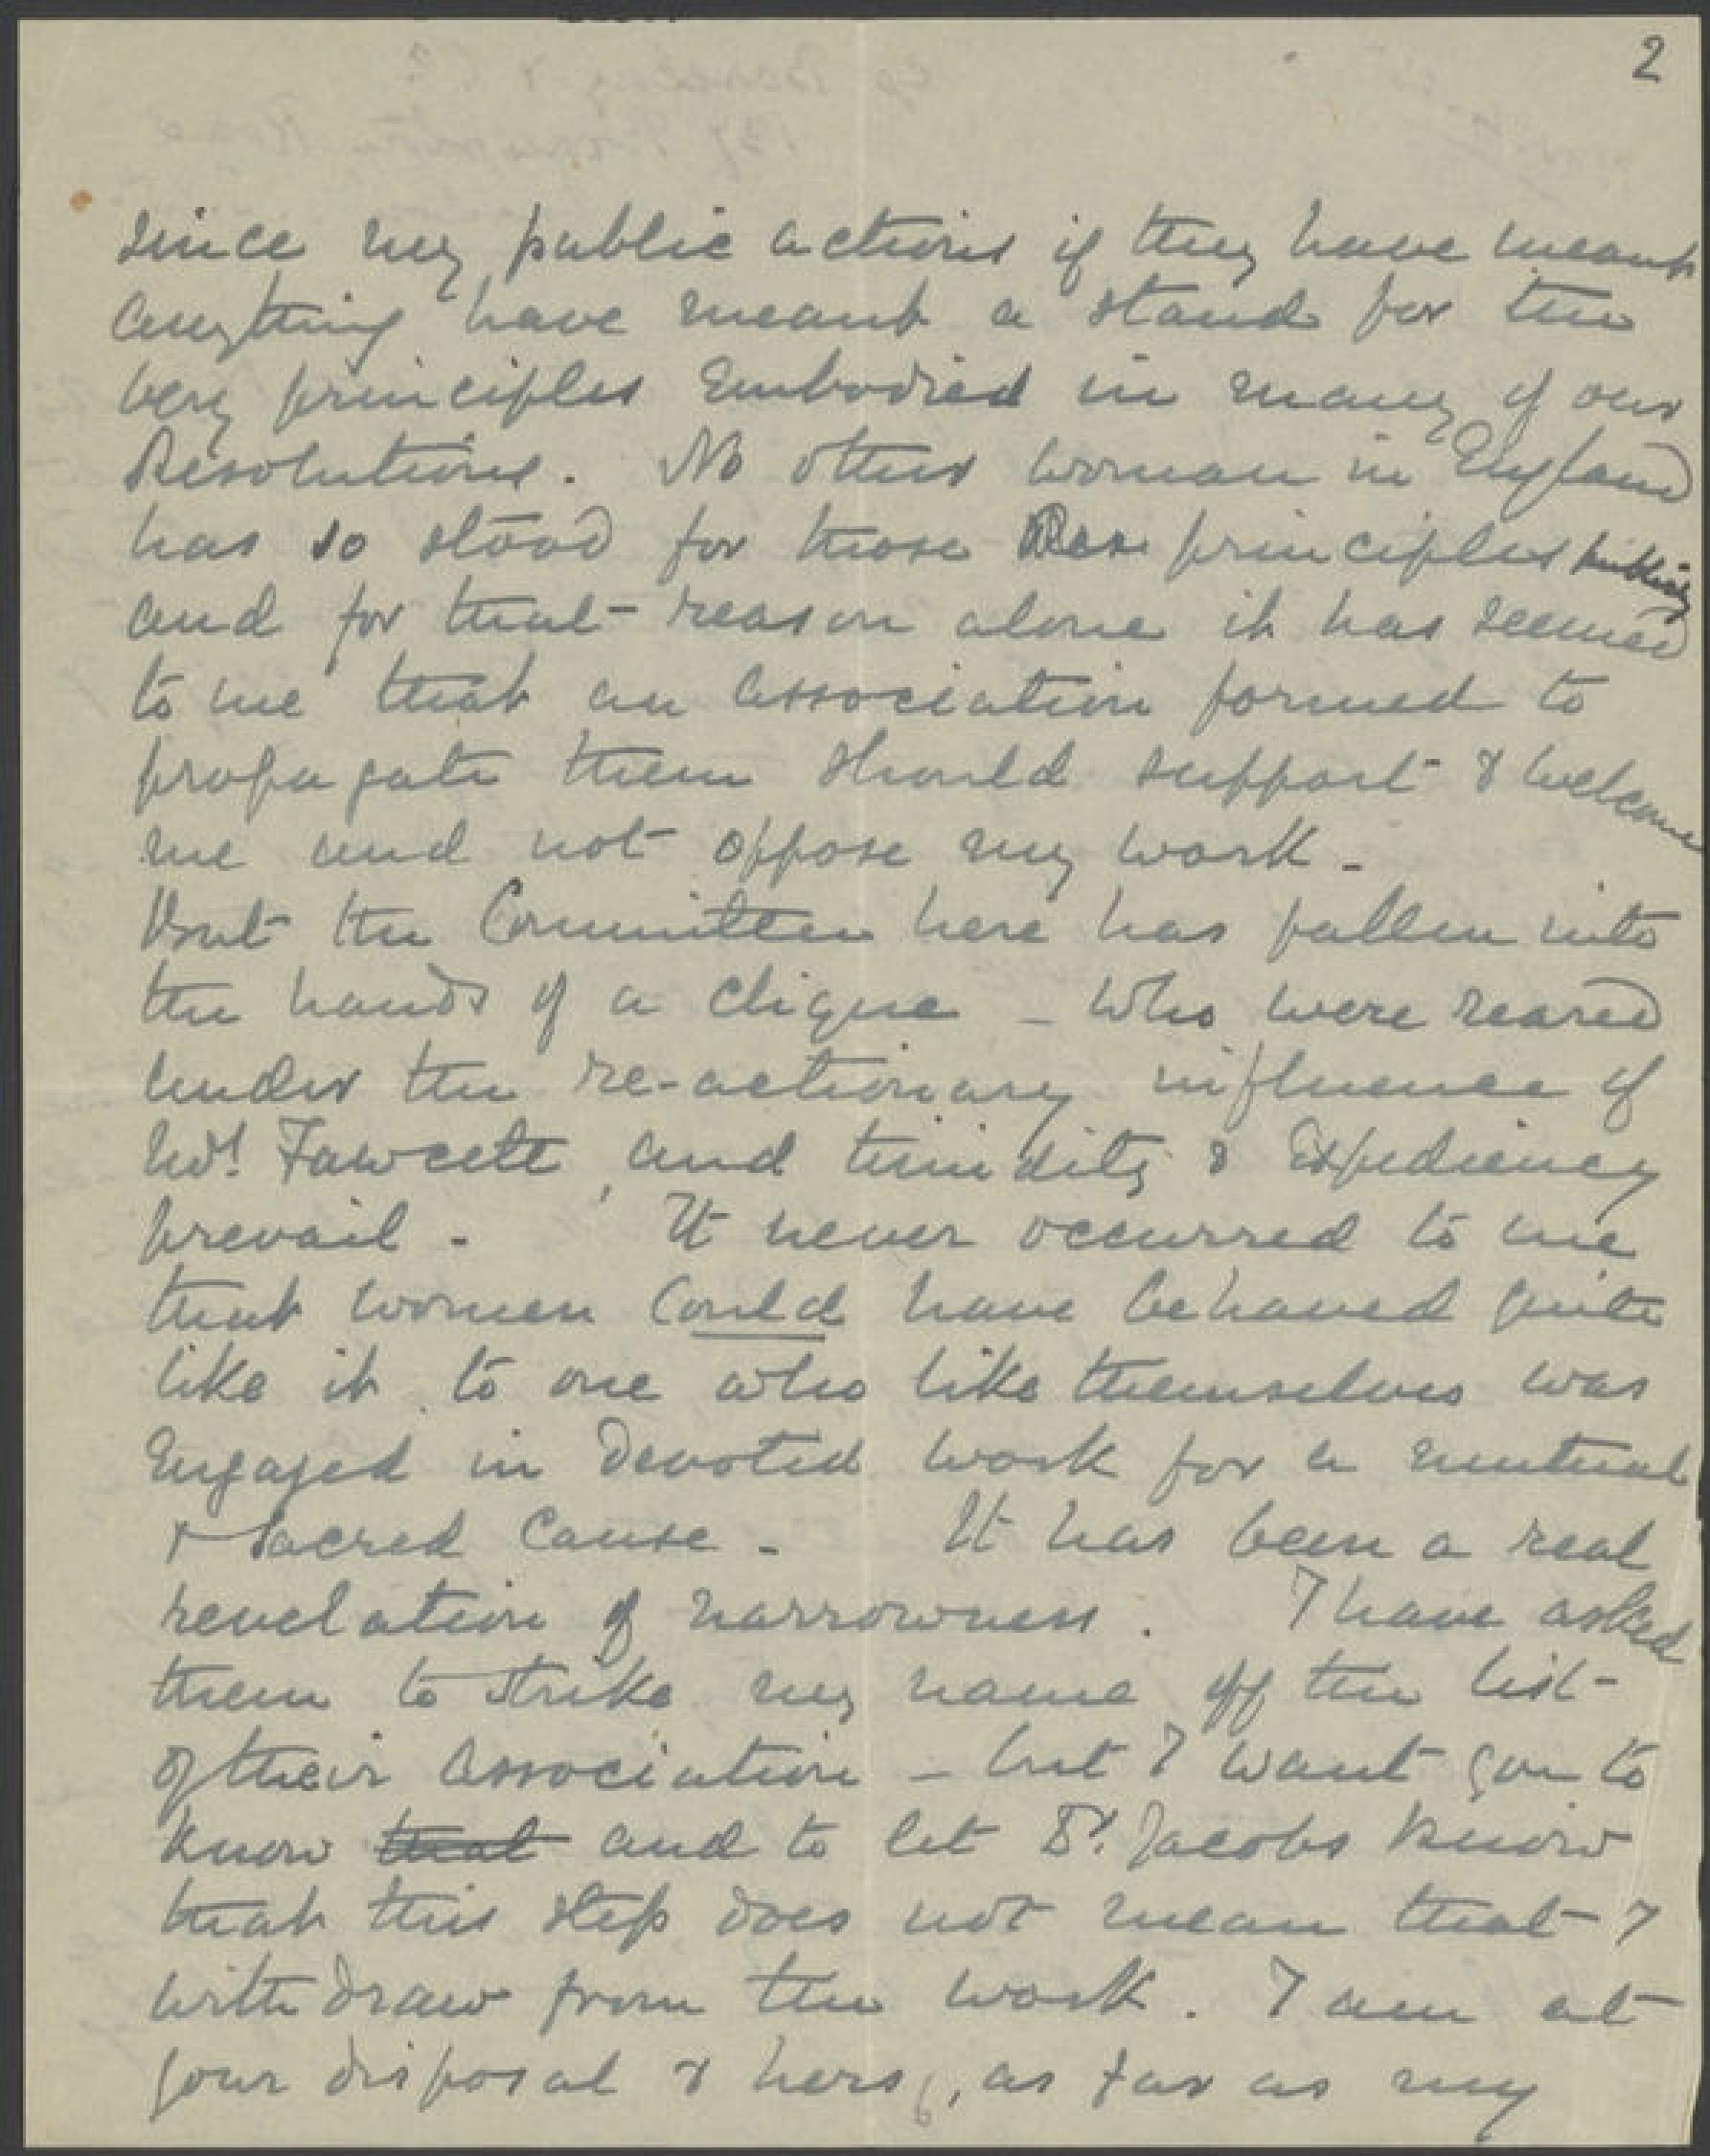 2
since my public actions if they have meant
anything have meant a stand for the
very principles Embodied in many of our
Resolutions. No other woman in England
has so stood for those principles publicly
and for that reason alone it has seemed
to me that an Association formed to
propagate them should support & welcome
me and not oppose my work -
But the Committee here has fallen into
the hands of a clique - who were reared
under the re-actionary influence of
Mrs. Fawcett, and timidity & Expediency
prevail - It never occurred to me
that women could have behaved quite
like it to one who like themselves was
Engaged in Devoted work for a mutual
& Sacred Cause - It has been a real
revelation of narrowness. I have asked
them to strike my name off the list
of their Association - but I want you to
know that and to let Dr. Jacobs know
that this step does not mean that I
withdraw from the work. I am at
your disposal & hers, as far as my